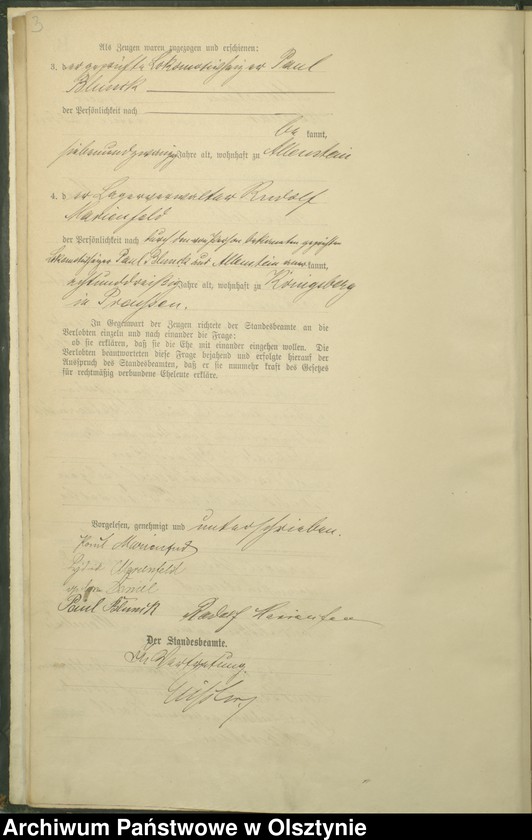 3
Als Zeugen waren zugezogen und erschienen:
3. der geprüfte Lokomotivheizer Paul
Blunck
der Persönlichkeit nach
be kannt,
siebenundzwanzig Jahre alt, wohnhaft zu Allenstein
4. der Lagerverwalter Rudolf
Marienfeld
der Persönlichkeit nach durch den von Person bekannten geprüften
Lokomotivheizer Paul Blunck aus Allenstein aner kannt,
achtunddreißig Jahre alt, wohnhaft zu Königsberg
in Preußen.
In Gegenwart der Zeugen richtete der Standesbeamte an die
Verlobten einzeln und nach einander die Frage:
ob sie erklären, daß sie die Ehe mit einander eingehen wollen. Die
Verlobten beantworteten diese Frage bejahend und erfolgte hierauf der
Ausspruch des Standesbeamten, daß er sie nunmehr kraft des Gesetzes
für rechtmäßig verbundene Eheleute erkläre.
Vorgelesen, genehmigt und unterschrieben.
Paul Marienfeld
Marienfeld
geborne
Paul Blunck Rudolf Marienfeld
Der Standesbeamte.
In Vertretung.
Archiwum Państwowe w Olsztynie